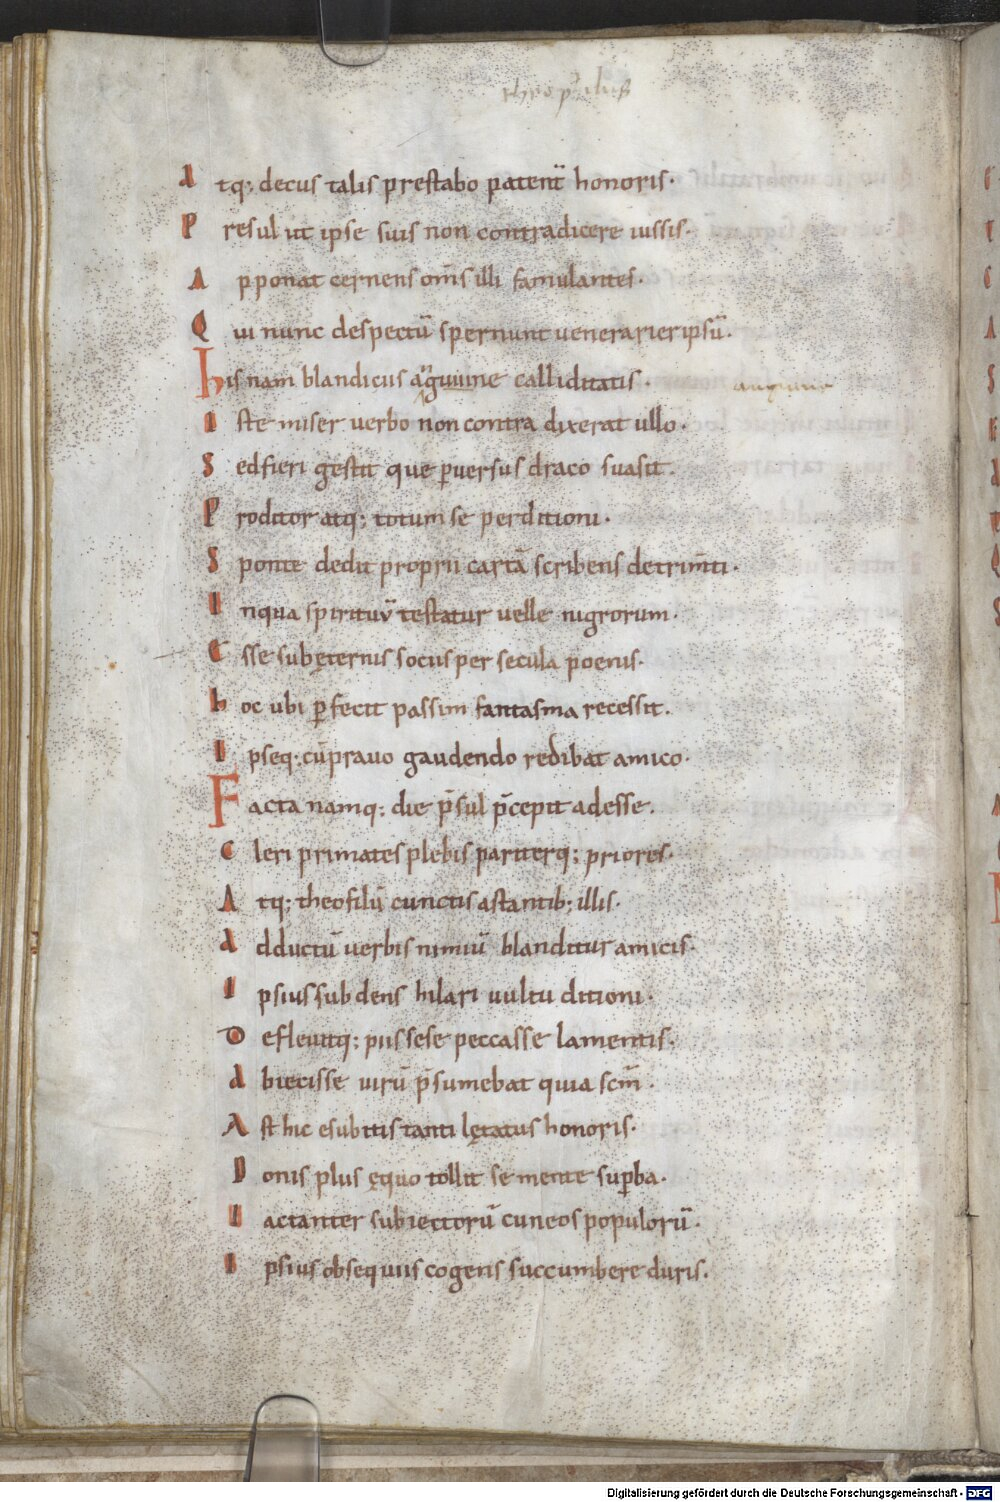 theophilus
Atq; decus talis prestabo patenť honoris.
Presul ut ipse suis non contradicere iussis.
Apponat cernens om̄s illi famulantes.
Qui nunc despectū spernunt venerarier ipsū.
his nam blandicus calliditatis.
anguine
Iste miser verbo non contra dixerat ullo.
Sed fieri gestit que p̲versus draco suasit.
Proditor atq; totum se perditioni.
Sponte dedit proprii cartā scribens detrim̄ti.
Inqua spirituū testatur velle nigrorum.
Esse sub ęternis socius per secula poenis.
hoc ubi p̲fecit passim fantasma recessit.
Ipseq; cū pravo gaudendo redibat amico.
Facta namq; die p̄sul p̄cepit adesse.
Cleri primates plebis pariterq; priores.
Atq; theofilū cunctis astantib; illis.
Adductū verbis nimiū blanditur amicis.
Ipsius subdens hilari vultu ditioni.
Deflevitq; pius sese peccasse lamentis.
Abiecisse virū p̄sumebat quia scm̄.
Ast hic e subitis tanti lętatus honoris.
Donis plus ęquo tollit se mente sup̲ba.
Iactanter subiectorū cuneos populorū.
Ipsius obsequiis cogens succumbere duris.
Digitalisierung gefördert durch die Deutsche Forschungsgemeinschaft - DFG